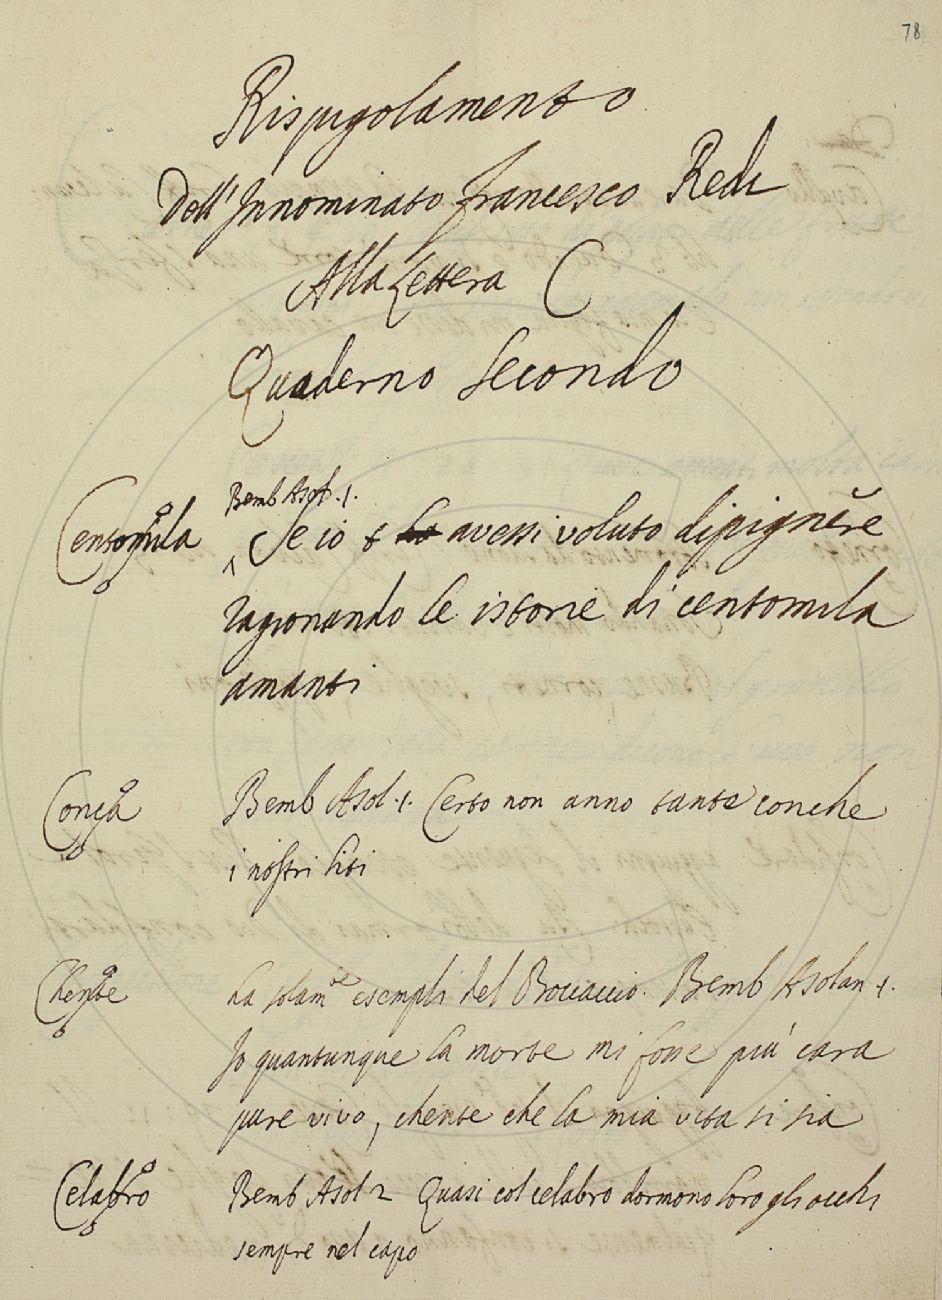 78
Rispigolamento
Dell'Innominato Francesco Redi
Alla Lettera C
Quaderno Secondo
Bemb Asol. 1.
Centomila Se io avessi voluto dipignere
ragionando le istorie di centomila
amanti
Conca Bemb Asol. 1. Certo non anno tante conche
i nostri liti
Chente Ha solam.te esempli del Boccaccio. Bemb Asolan 1.
Io quantunque la morte mi fosse più cara
pure vivo, chente che la mia vita si sia
Celabro Bemb Asol 2 Quasi col celabro dormono loro gli occhi
sempre nel capo